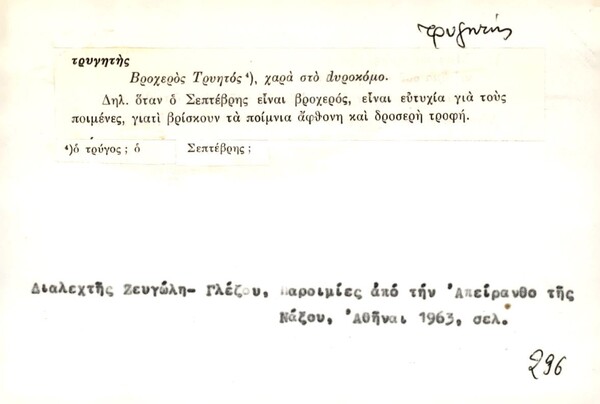 τρυγητής
τρυγητὴς
Βροχερὸς Τρυητός⁴), χαρὰ στὸ ἀυροκόμο.
Δηλ. ὅταν ὁ Σεπτέβρης εἶναι βροχερός, εἶναι εὐτυχία γιὰ τοὺς
ποιμένες, γιατὶ βρίσκουν τὰ ποίμνια ἄφθονη καὶ δροσερὴ τροφή.
⁴)ὁ τρύγος; ὁ Σεπτέβρης;
Διαλεχτῆς Ζευγώλη- Γλέζου, Παροιμίες ἀπό τήν Ἀπείρανθο τῆς
Νάξου, Ἀθῆναι 1963, σελ.
296